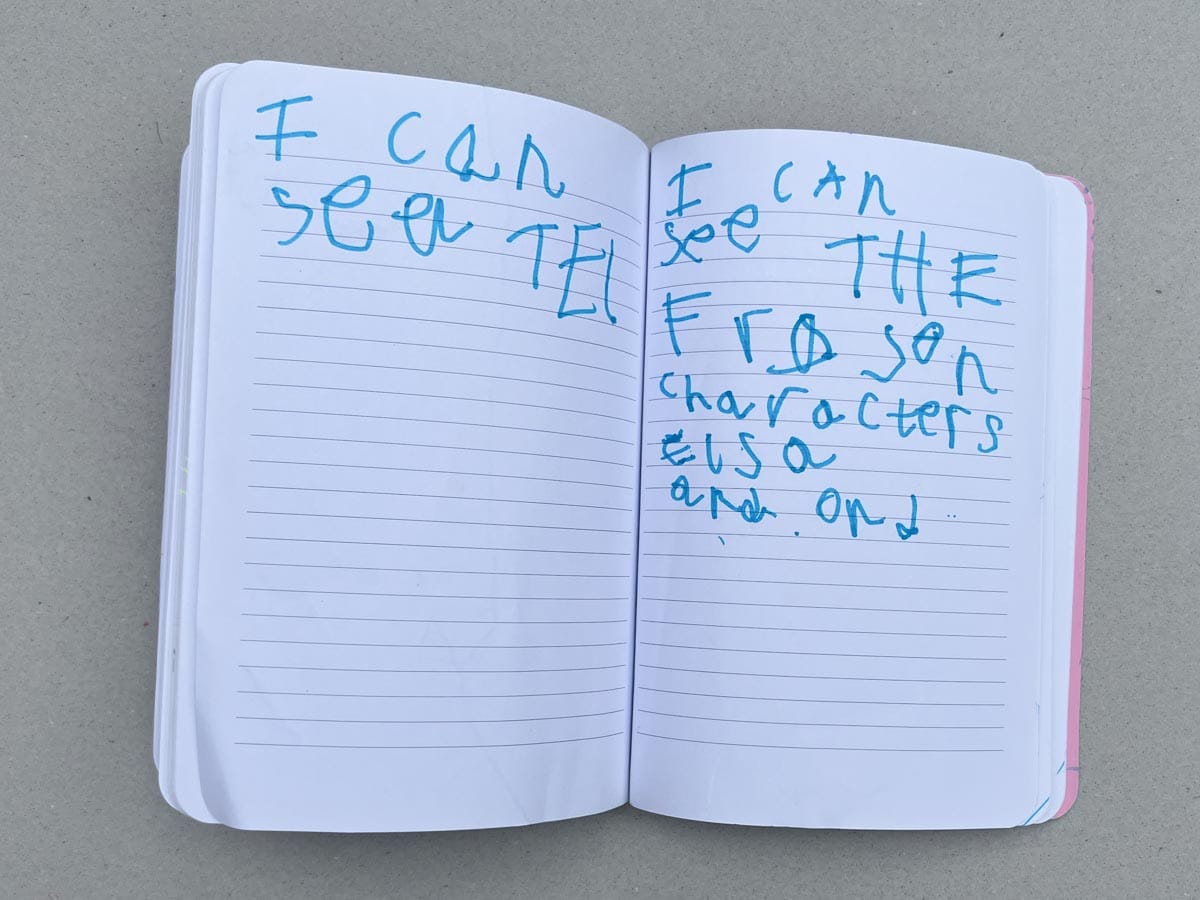 I can
see a TEl
I CAn
see THE
Frosen
characters
elsa
and ond